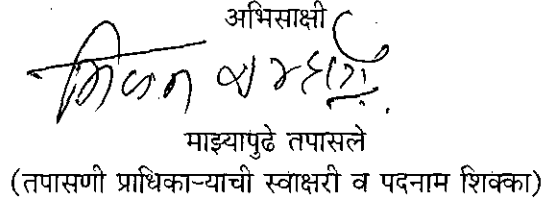 अभिसाक्षी
माझ्यापुढे तपासले
(तपासणी प्राधिकाऱ्याची स्वाक्षरी व पदनाम शिक्का)